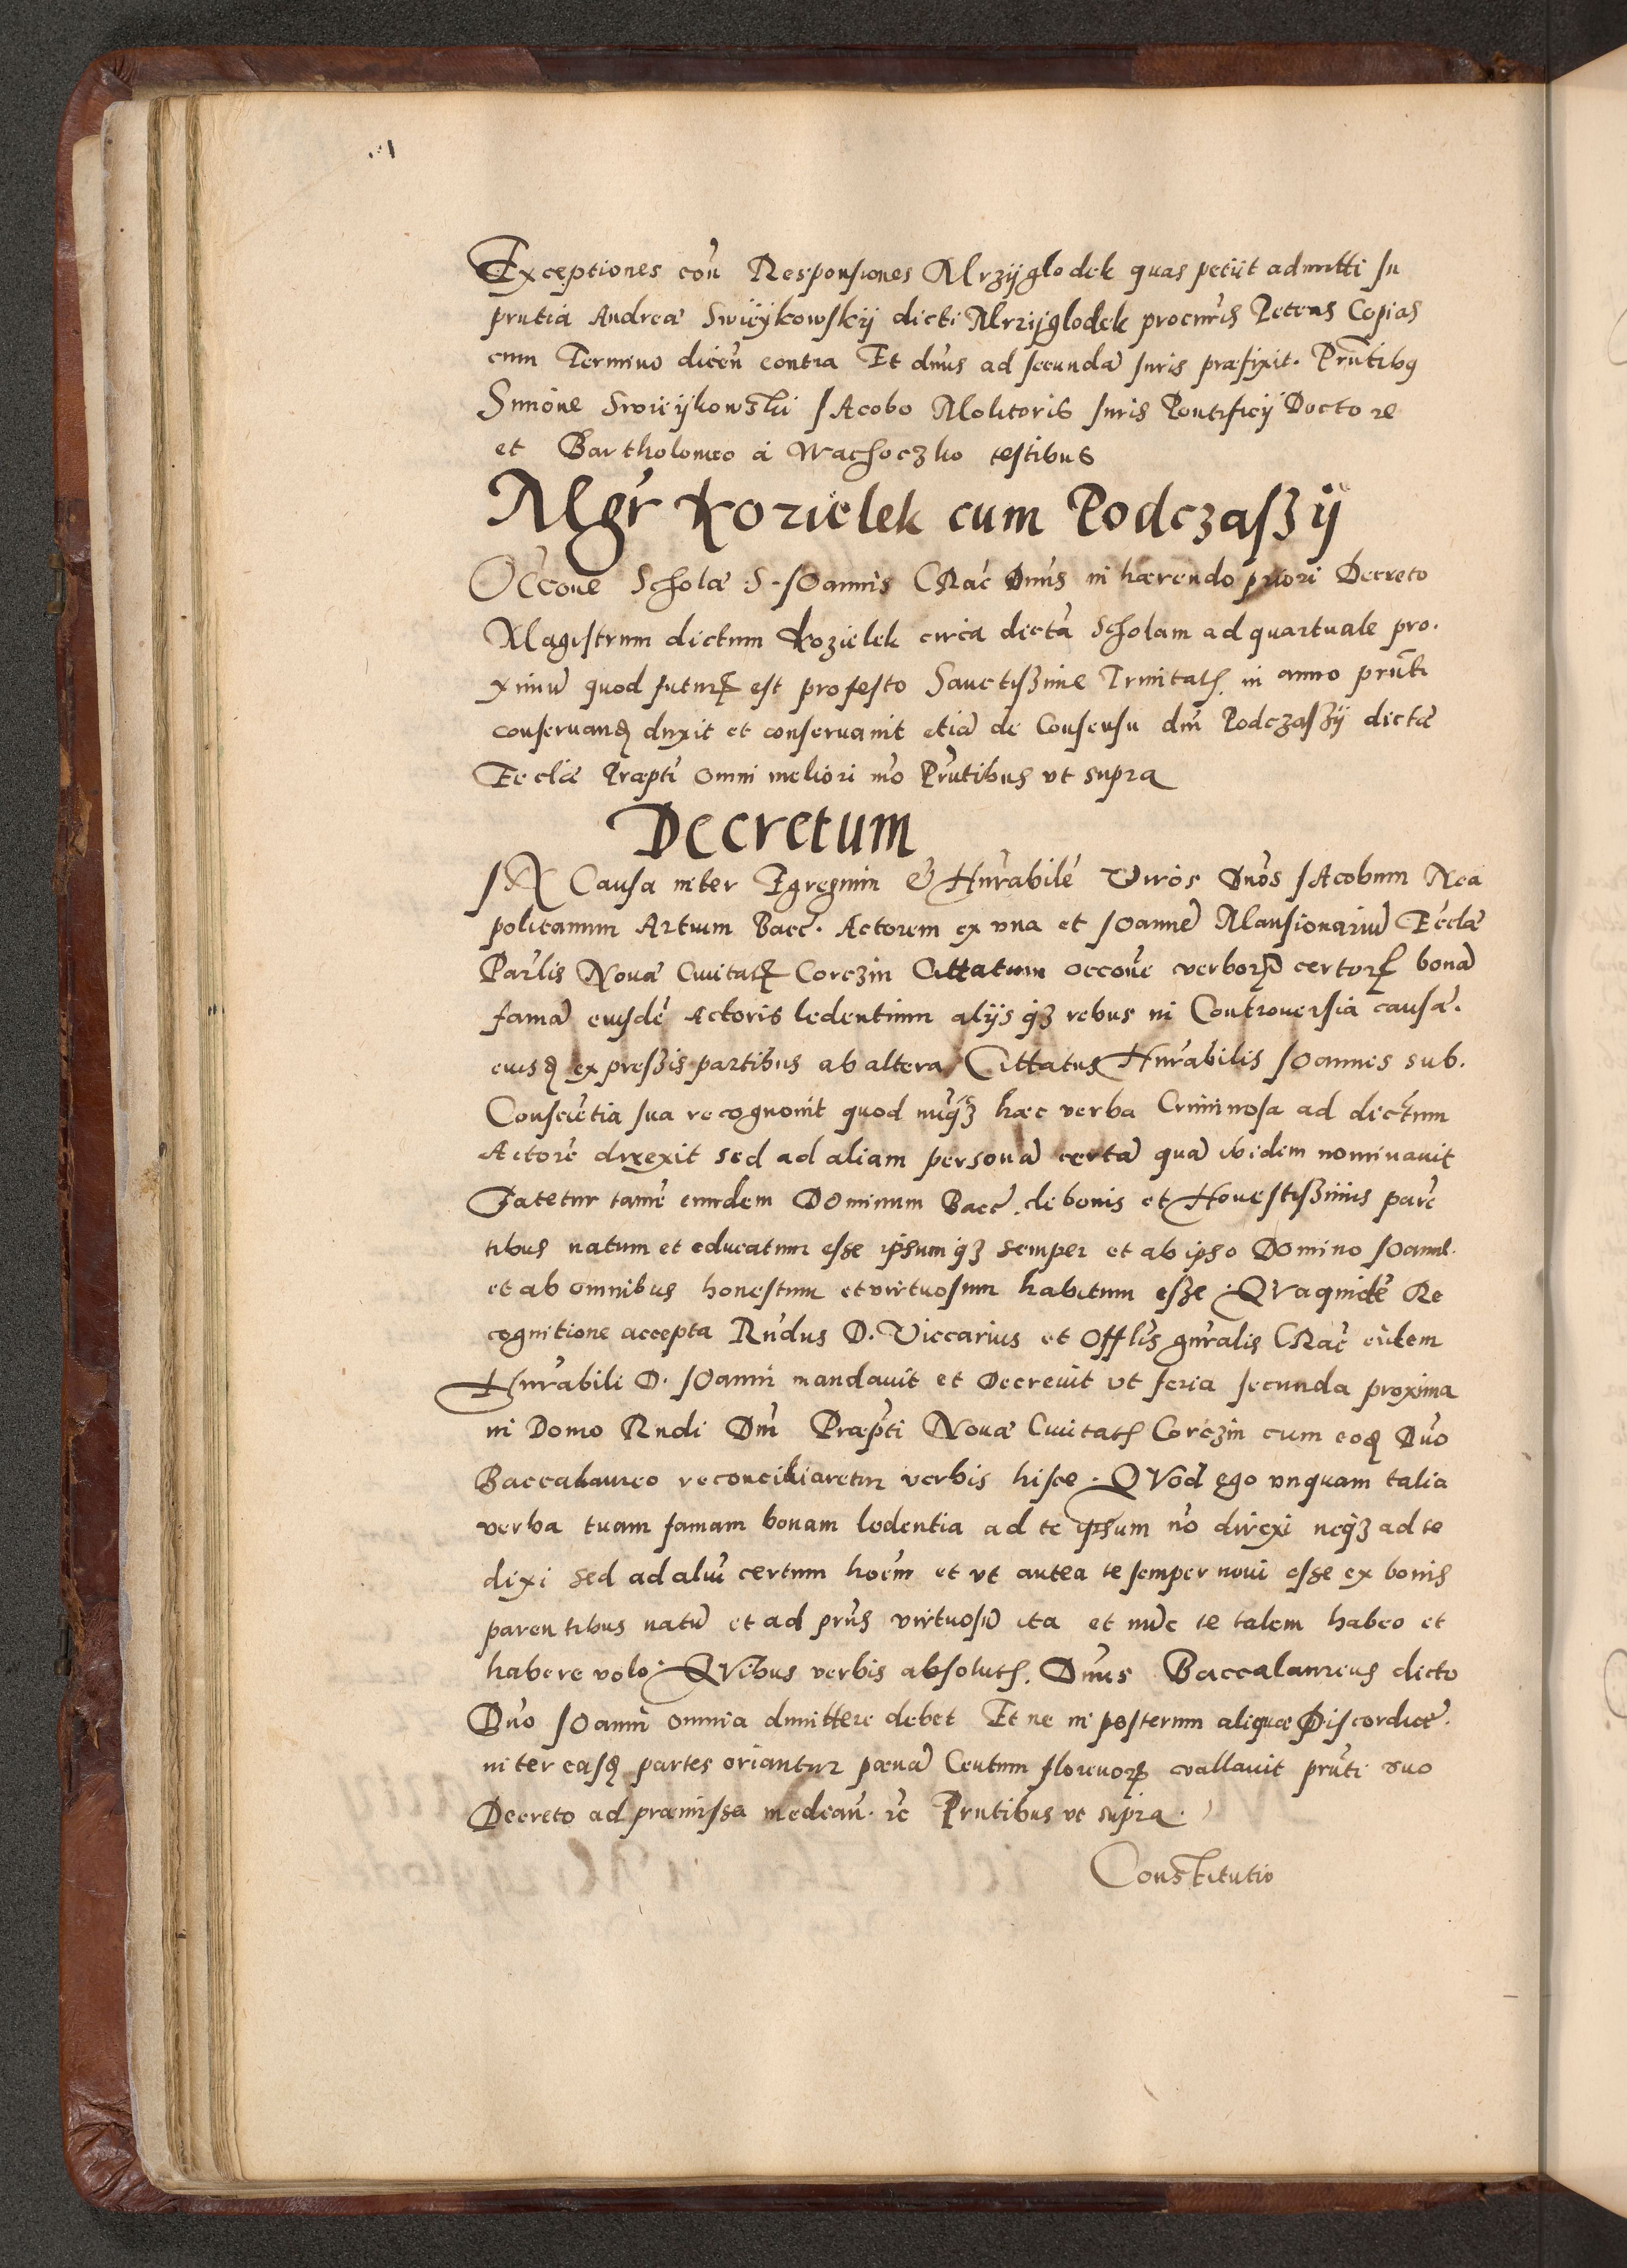 Exceptiones coñ Responsiones Mrzÿglodek quas petiit admitti In
prntiã Andreæ Swieÿkowskÿ dicti Mrzÿglodek procuris Petens Copias
cum Termino diceñ contra Et dnus ad secundã Iuris præfixit. Prntibꝯ
Simone Swieÿkowski IAcobo Molitoris Iuris Pontificij Doctore
et Bartholomeo à Wachoczko testibus
Mgr Kozielek cum Podczaszÿ
OCcone Scholæ S. IOannis CRac Dnus inhærendo priori Decreto
Magistrum dictum Kozielek circa dictã Scholam ad quartuale pro.
ximũ quod futurꝝ est profesto Sanctissime Trinitatis in anno prnti
conseruanđ duxit et conseruauit etiã de Consensu dni Podczaszÿ dictæ
Ecclæ Præpti omni meliori mõ Prntibus vt supra
Decretum
IN Causa inter Egregium & Hnrabilẽ Viros Dnos IAcobum Nea
politanum Artium Bacc. Actorem ex vna et IOannẽ Mansionariũ Ecclæ
Parlis Nouæ Ciuitatis Corczin Cittatum occone verborꝝ certorꝝ bonã
famã eiusdẽ Actoris ledentium alijsqȝ rebus in Controuersia causæ.
eiusđ expressis partibus ab altera Cittatus Hnrabilis IOannes sub.
Consciẽtia sua recognouit quod nũqȝ hæc verba Criminosa ad dictum
Actorẽ direxit sed ad aliam personã certã quã ibidem nominauit
Fatetur tamẽ eundem DOminum Bacc. de bonis et Honestissimis parẽ
tibus natum et educatum esse ipsumqȝ semper et ab ipso DOmino IOanne.
et ab omnibus honestum et virtuosum habitum esse. QVaquidẽ Re
cognitione accepta Rndus D. Viccarius et Offlis gnralis CRac eidem
Hnrabili D. IOanni mandauit et Decreuit vt feria secunda proxima
in Domo Rndi Dni Præpti Nouæ Ciuitatis Corczin cum eođ Dno
Baccalaureo reconciliaretur verbis hisce. QVod ego vnquam talia
verba tuam famam bonam ledentia ad te ipsum nõ direxi neqȝ ad te
dixi sed ad aliũ certum hoẽm et vt antea te semper noui esse ex bonis
parentibus natũ et ad prns virtuosũ ita et nũc te talem habeo et
habere volo. QVibus verbis absolutis. Dnus Baccalaureus dicto
Dno IOanni omnia dimittere debet Et ne in posterum aliquæ Discordiæ.
inter easđ partes oriantur pænã Centum florenorꝝ vallauit prnti suo
Decreto ad præmissa medeañ. rc Prntibus vt supra.
Constitutio